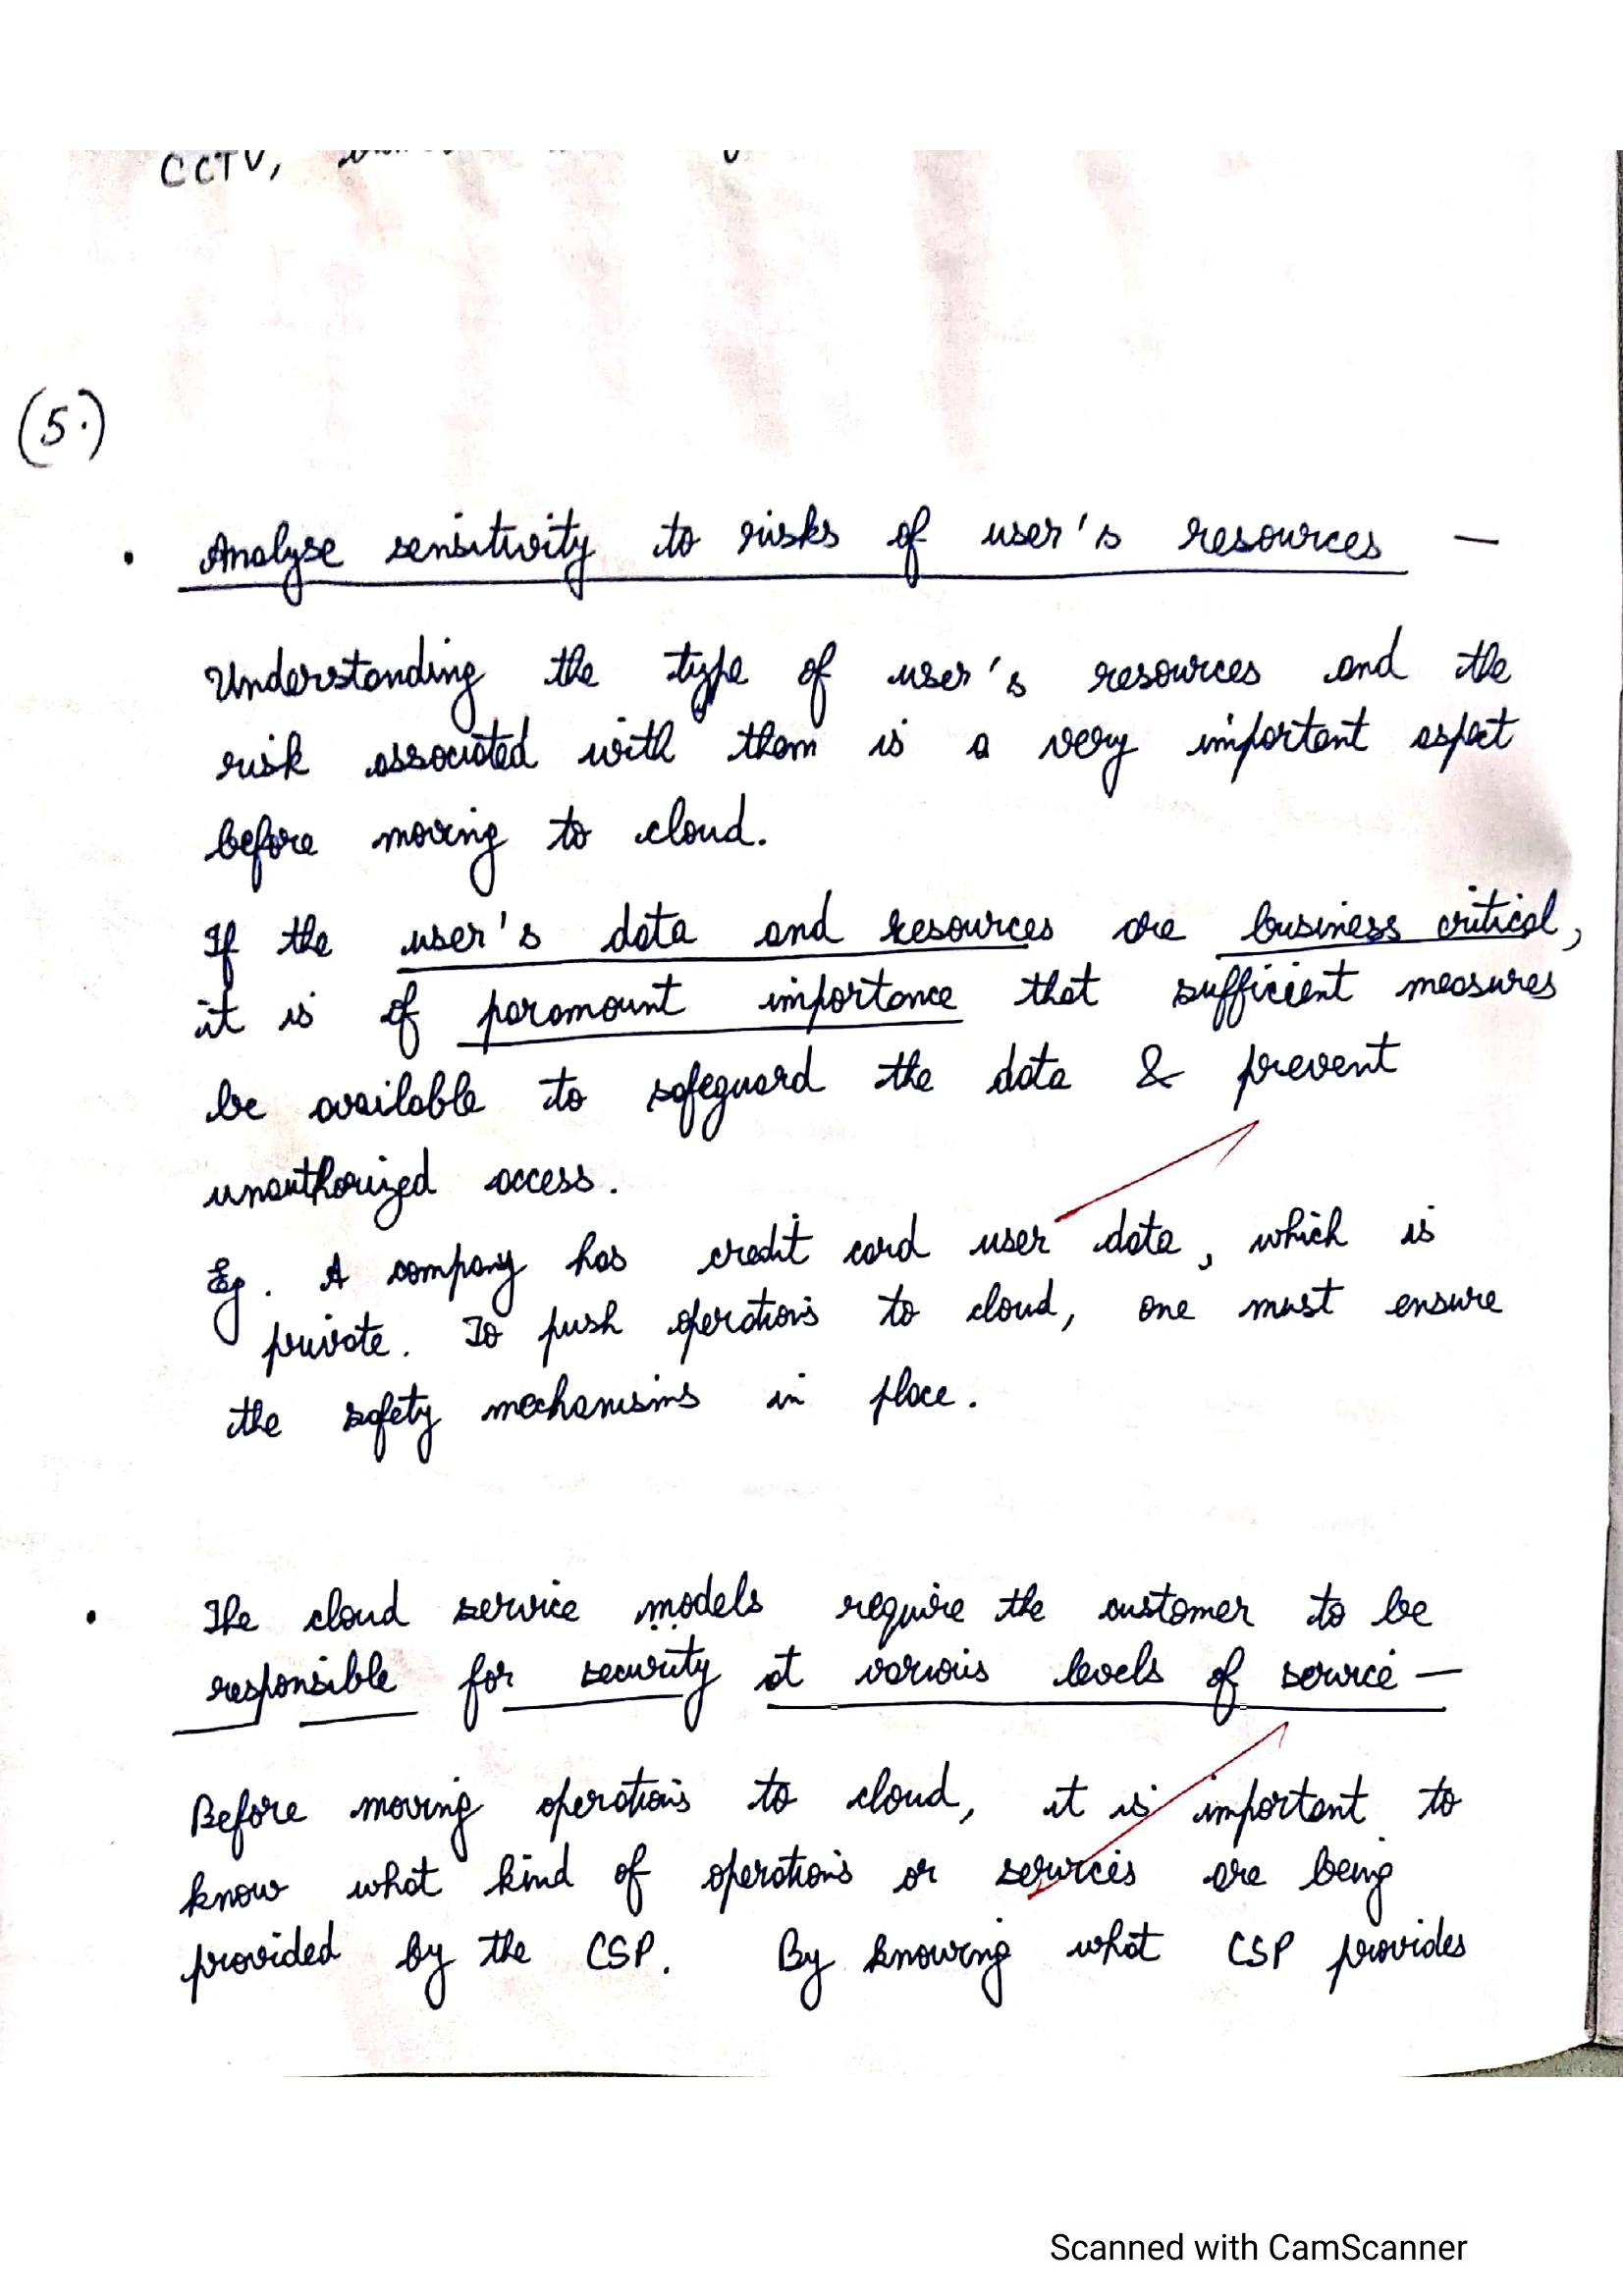 CCTV,
(5.)
• Analyse sensitivity to risks of user's resources —
Understanding the type of user's resources and the
risk associated with them is a very important aspect
before moving to cloud.
If the user's data and resources are business critical,
it is of paramount importance that sufficient measures
be available to safeguard the data & prevent
unauthorized access.
Eg. A company has credit card user data, which is
private. To push operations to cloud, one must ensure
the safety mechanisms in place.
• The cloud service models require the customer to be
responsible for security at various levels of service —
Before moving operations to cloud, it is important to
know what kind of operations or services are being
provided by the CSP. By knowing what CSP provides
Scanned with CamScanner